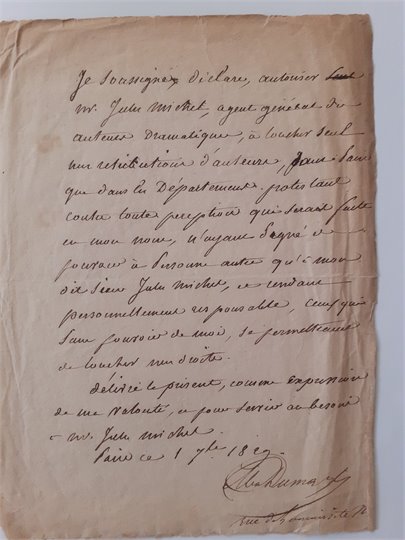 Je soussigné déclare, autoriser
mr. Jules Michel, agent général des
auteurs Dramatiques, à toucher seul
mes rétributions d'auteurs, à Paris
que dans les Départements. protestant
contre toute perception qui serait faite
en mon nom, n'ayant signé de
pouvoir à Personne autre qu'à mon
dit Sieur Jules Michel, et rendant
personnellement responsable, ceux qui
Sans pouvoir de moi, se permettraient
de toucher mes droits.
délivré le présent, comme expression
de ma volonté, et pour servir au besoin
à mr. Jules Michel.
Paris ce 1 7bre 18
Dumas
rue de